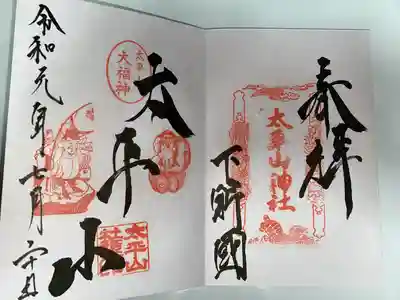 奉拝
太平山神社
下野國
太平山
太平
大福神
太平山
令和元年七月